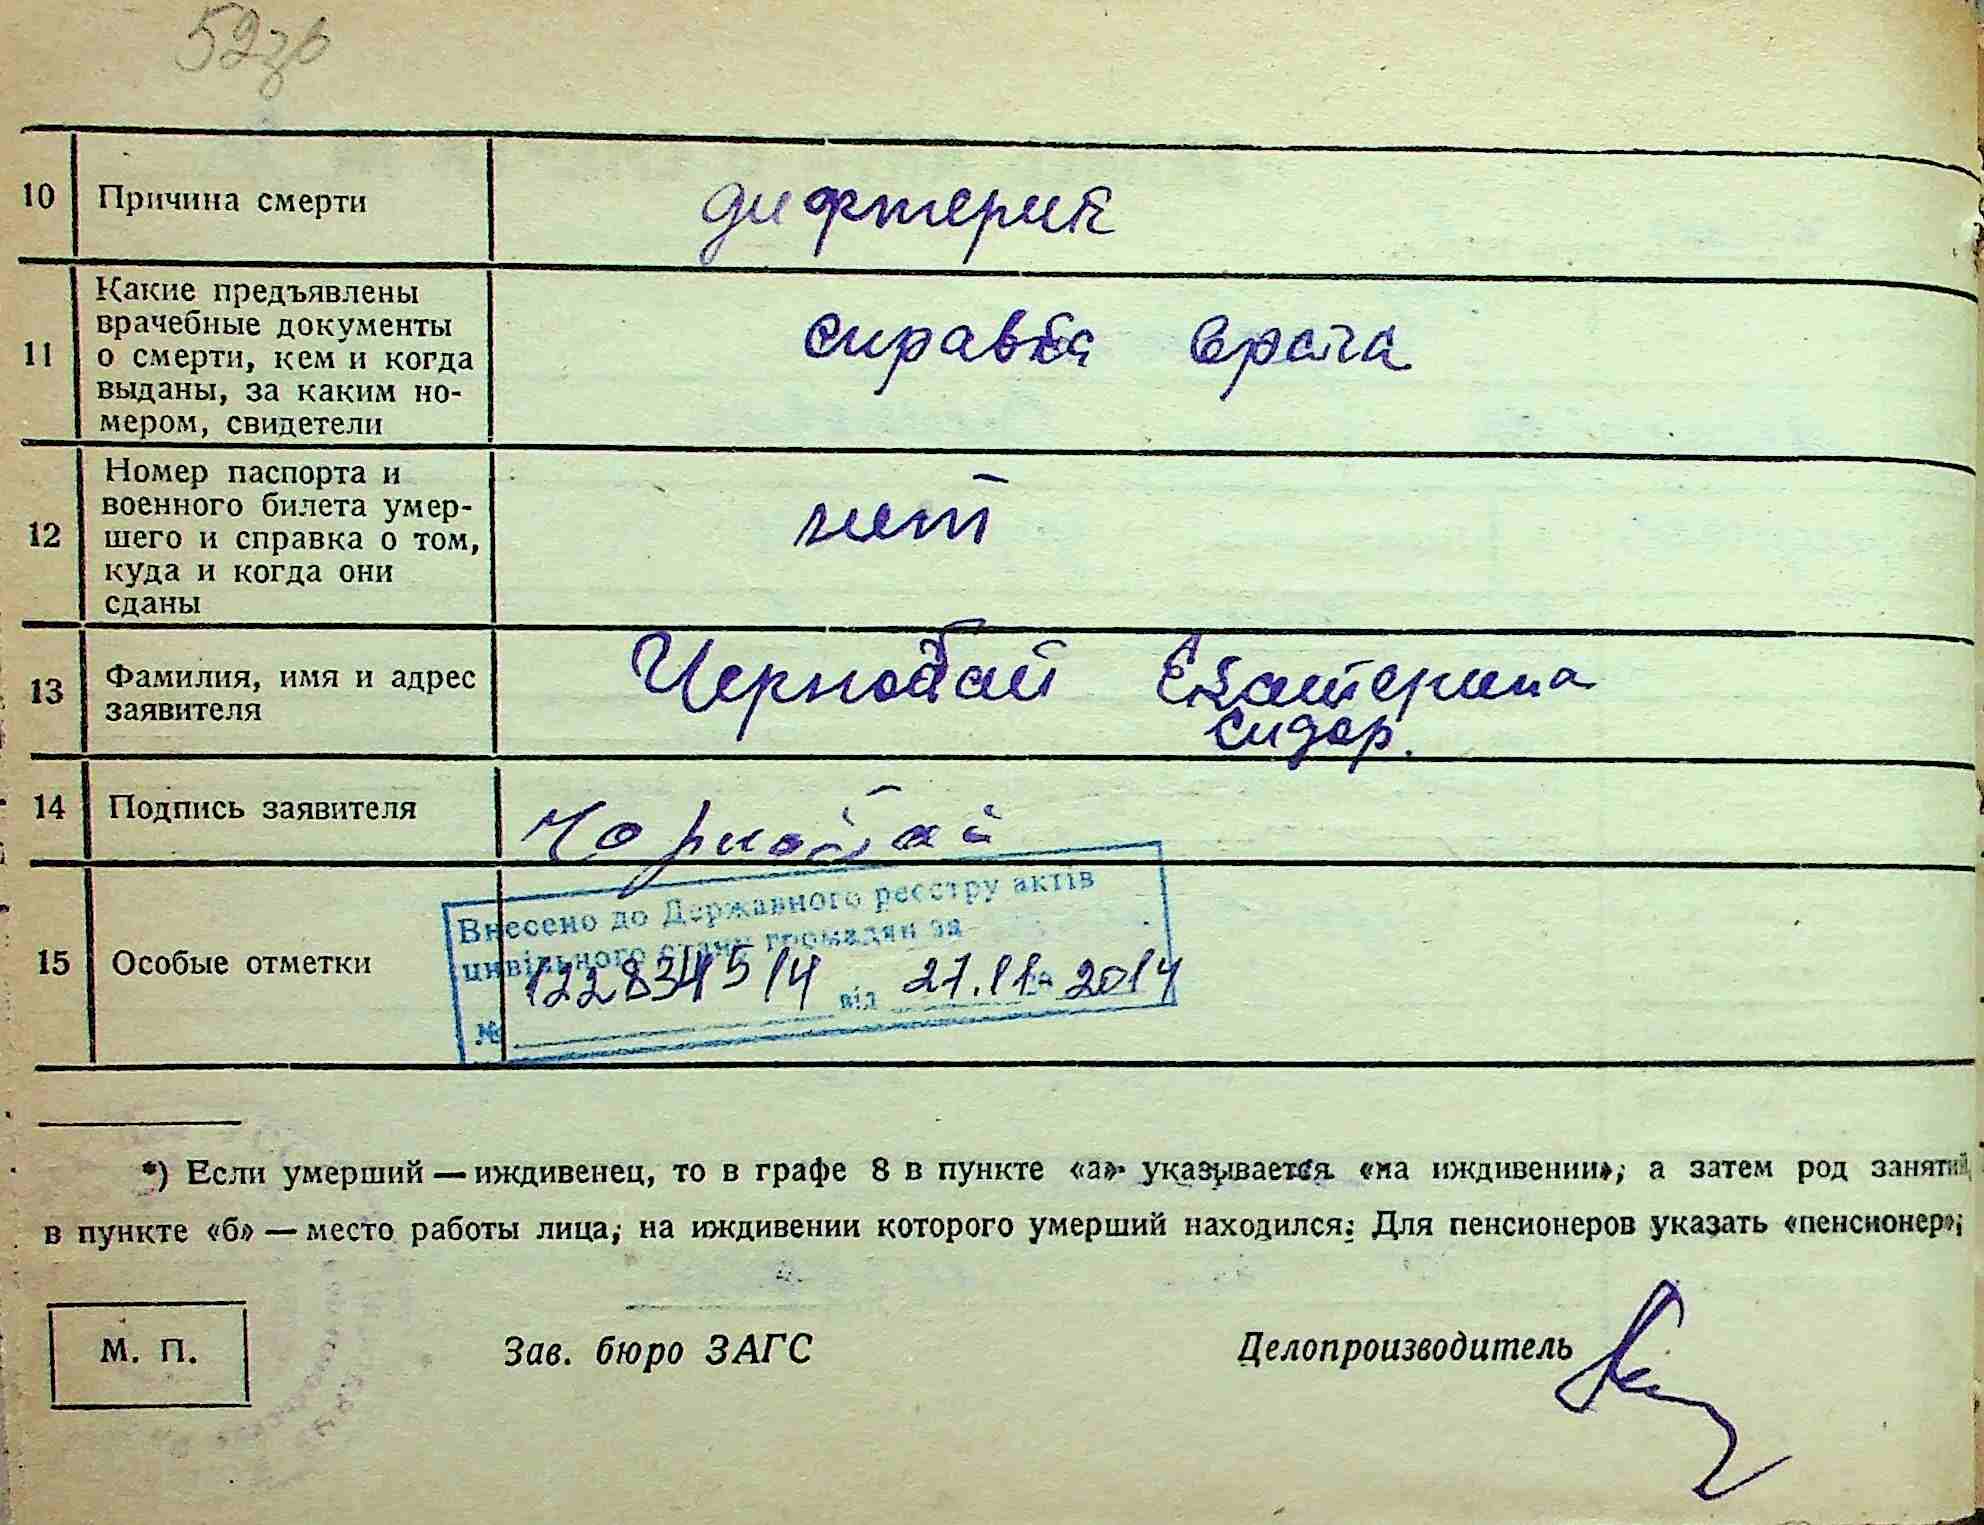 52зв
10 Причина смерти дифтерит
11 Какие предъявлены
врачебные документы
о смерти, кем и когда
выданы, за каким но-
мером, свидетели
справка врача
12 Номер паспорта и
военного билета умер-
шего и справка о том,
куда и когда они
сданы
нет
13 Фамилия, имя и адрес
заявителя
Чернобай Екатерина
Сидор.
14 Подпись заявителя Чорнобай
15 Особые отметки
Внесено до Державного реєстру актів
цивільного стану громадян за
№ 122834514 від 27.11 2014
*) Если умерший — иждивенец, то в графе 8 в пункте «а» указывается «на иждивении», а затем род занятий,
в пункте «б» — место работы лица, на иждивении которого умерший находился. Для пенсионеров указать «пенсионер»,
М. П. Зав. бюро ЗАГС Делопроизводитель